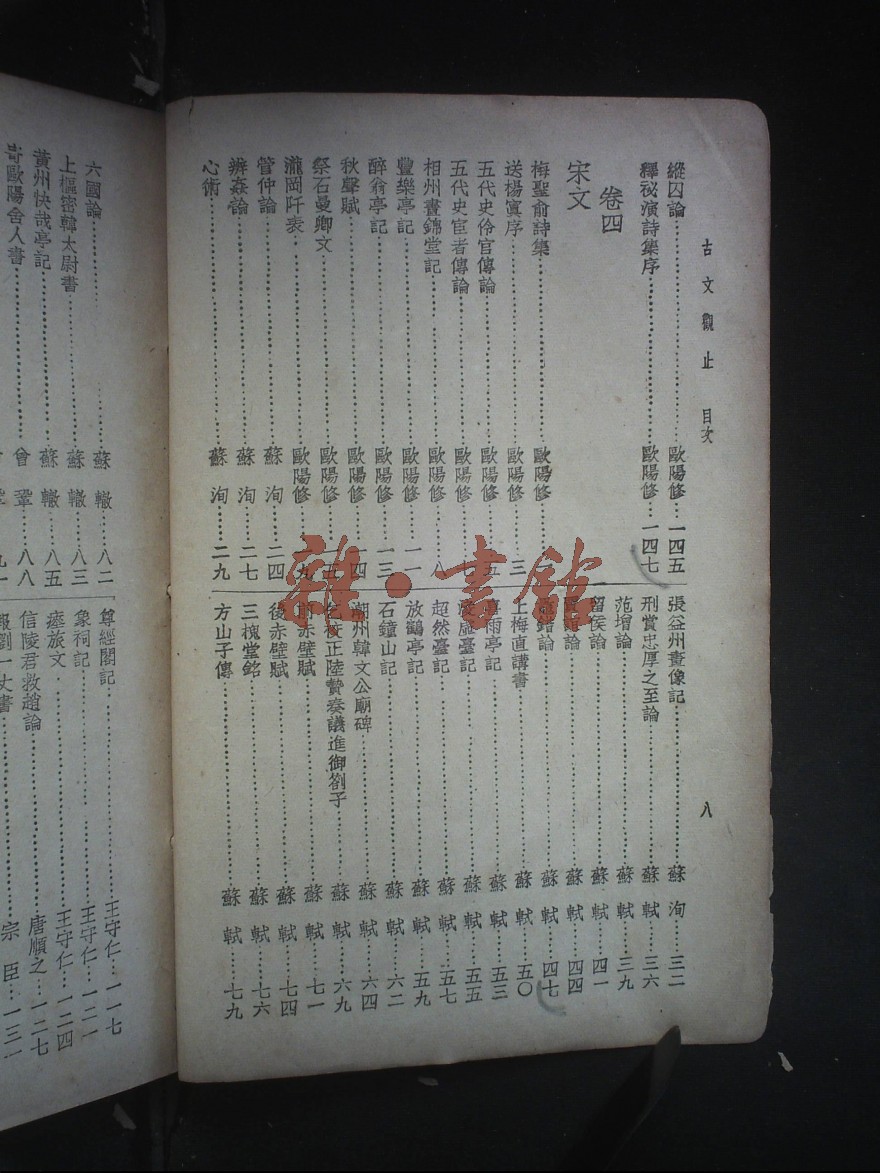 古文觀止 目次
八
縱囚論 歐陽修 一四五
釋祕演詩集序 歐陽修 一四七
卷四
宋文
梅聖俞詩集 歐陽修 一
送楊寘序 歐陽修 三
五代史伶官傳論 歐陽修 五
五代史宦者傳論 歐陽修 七
相州晝錦堂記 歐陽修 八
豐樂亭記 歐陽修 一一
醉翁亭記 歐陽修 一三
秋聲賦 歐陽修 一四
祭石曼卿文 歐陽修 一五
瀧岡阡表 歐陽修 一九
管仲論 蘇洵 二四
辨姦論 蘇洵 二七
心術 蘇洵 二九
張益州畫像記 蘇洵 三二
刑賞忠厚之至論 蘇軾 三六
范增論 蘇軾 三九
留侯論 蘇軾 四一
論 蘇軾 四四
鼂錯論 蘇軾 四七
上梅直講書 蘇軾 五〇
喜雨亭記 蘇軾 五三
臺記 蘇軾 五五
超然臺記 蘇軾 五七
放鶴亭記 蘇軾 五九
石鐘山記 蘇軾 六二
潮州韓文公廟碑 蘇軾 六四
乞校正陸贄奏議進御劄子 蘇軾 六九
前赤壁賦 蘇軾 七一
後赤壁賦 蘇軾 七四
三槐堂銘 蘇軾 七六
方山子傳 蘇軾 七九
六國論 蘇轍 八二
上樞密韓太尉書 蘇轍 八三
黃州快哉亭記 蘇轍 八五
寄歐陽舍人書 曾鞏 八八
九一
尊經閣記 王守仁 一一七
象祠記 王守仁 一二一
瘞旅文 王守仁 一二四
信陵君救趙論 唐順之 一二七
報劉一丈書 宗臣 一三一
雜·書館